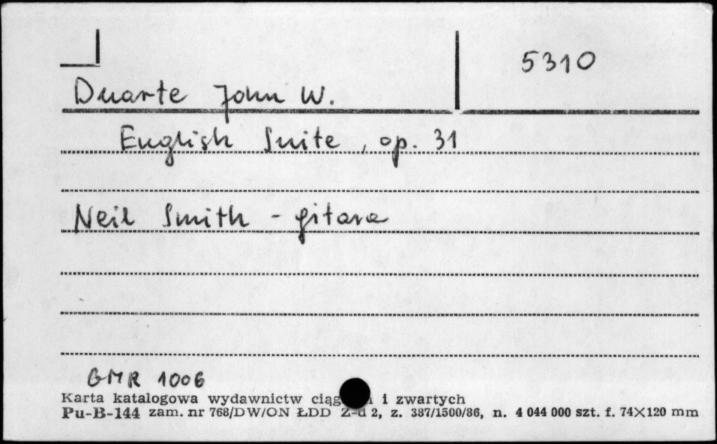 5310
Duarte John W.
English Suite, op. 31
Neil Smith - gitara
GMR 1006
Karta katalogowa wydawnictw i zwartych
Pu-B-144 zam. nr 768/DW/ON ŁDD 2, z. 387/1500/86, n. 4 044 000 szt. f. 74×120 mm